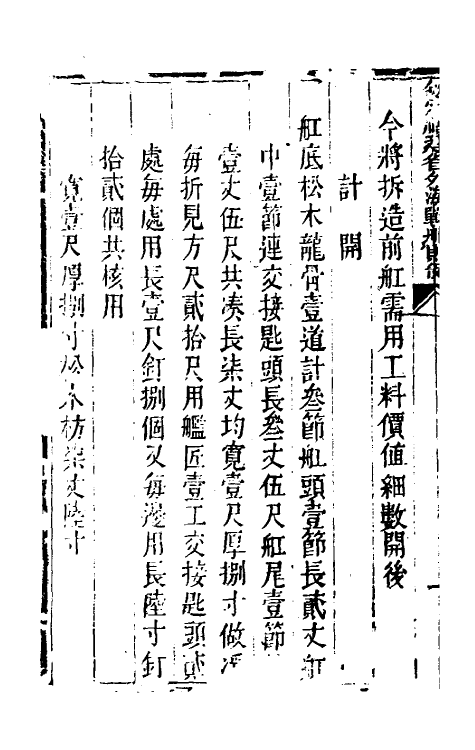 今將拆造前舡需用工料價値細數開後
計開
舡底松木龍骨壹道計叄節舡頭壹節長貳丈舡
中壹節連交接匙頭長叄丈伍尺舡尾壹節
壹丈伍尺共凑長柒丈均寬壹尺厚捌寸做凈
每折見方尺貳拾尺用艌匠壹工交接匙頭貳
處每處用長壹尺釘捌個又每邊用長陸寸釘
拾貳個共核用
寬壹尺厚捌寸松木枋柒丈陸寸